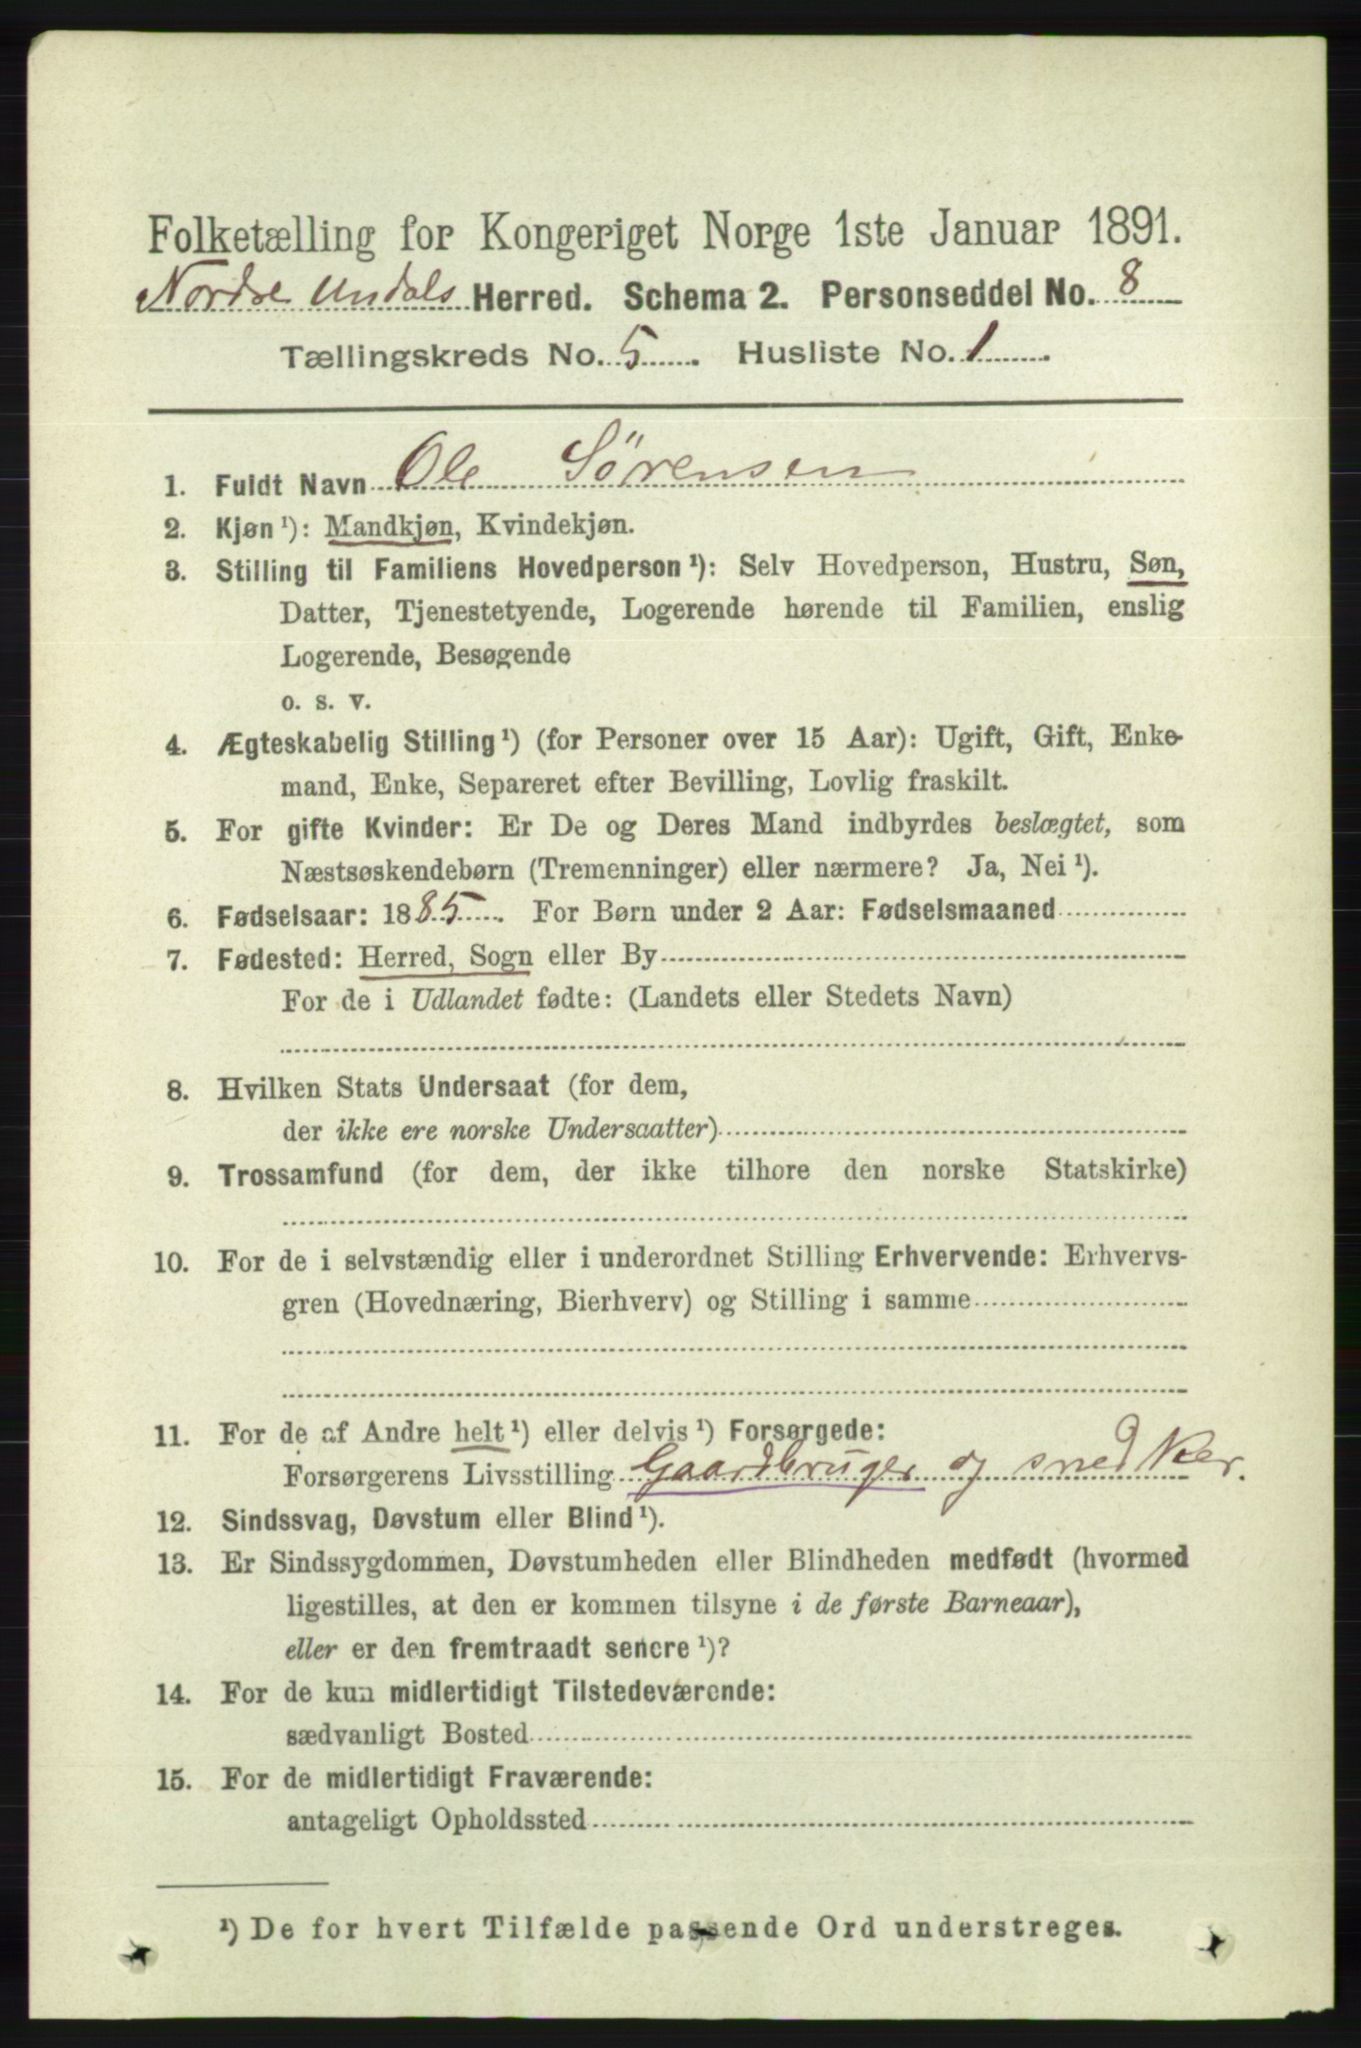 Folketælling for Kongeriget Norge 1ste Januar 1891.
Nordre Undals Herred. Schema 2. Personseddel No. 8
Tællingskreds No. 5. Husliste No. 1.
1. Fuldt Navn Ole Sörensen
2. Kjøn¹): Mandkjøn, Kvindekjøn.
3. Stilling til Familiens Hovedperson¹): Selv Hovedperson, Hustru, Søn,
Datter, Tjenestetyende, Logerende hørende til Familien, enslig
Logerende, Besøgende
o. s. v.
4. Ægteskabelig Stilling¹) (for Personer over 15 Aar): Ugift, Gift, Enke-
mand, Enke, Separeret efter Bevilling, Lovlig fraskilt.
5. For gifte Kvinder: Er De og Deres Mand indbyrdes beslægtet, som
Næstsøskendebørn (Tremenninger) eller nærmere? Ja, Nei¹).
6. Fødselsaar: 1885. For Børn under 2 Aar: Fødselsmaaned
7. Fødested: Herred, Sogn eller By
For de i Udlandet fødte: (Landets eller Stedets Navn)
8. Hvilken Stats Undersaat (for dem,
der ikke ere norske Undersaatter)
9. Trossamfund (for dem, der ikke tilhore den norske Statskirke)
10. For de i selvstændig eller i underordnet Stilling Erhvervende: Erhvervs-
gren (Hovednæring, Bierhverv) og Stilling i samme
11. For de af Andre helt¹) eller delvis¹) Forsørgede:
Forsørgerens Livsstilling Gaardbruger og snedker.
12. Sindssvag, Døvstum eller Blind¹).
13. Er Sindssygdommen, Døvstumheden eller Blindheden medfødt (hvormed
ligestilles, at den er kommen tilsyne i de første Barneaar),
eller er den fremtraadt senere¹)?
14. For de kun midlertidigt Tilstedeværende:
sædvanligt Bosted
15. For de midlertidigt Fraværende:
antageligt Opholdssted
¹) De for hvert Tilfælde passende Ord understreges.